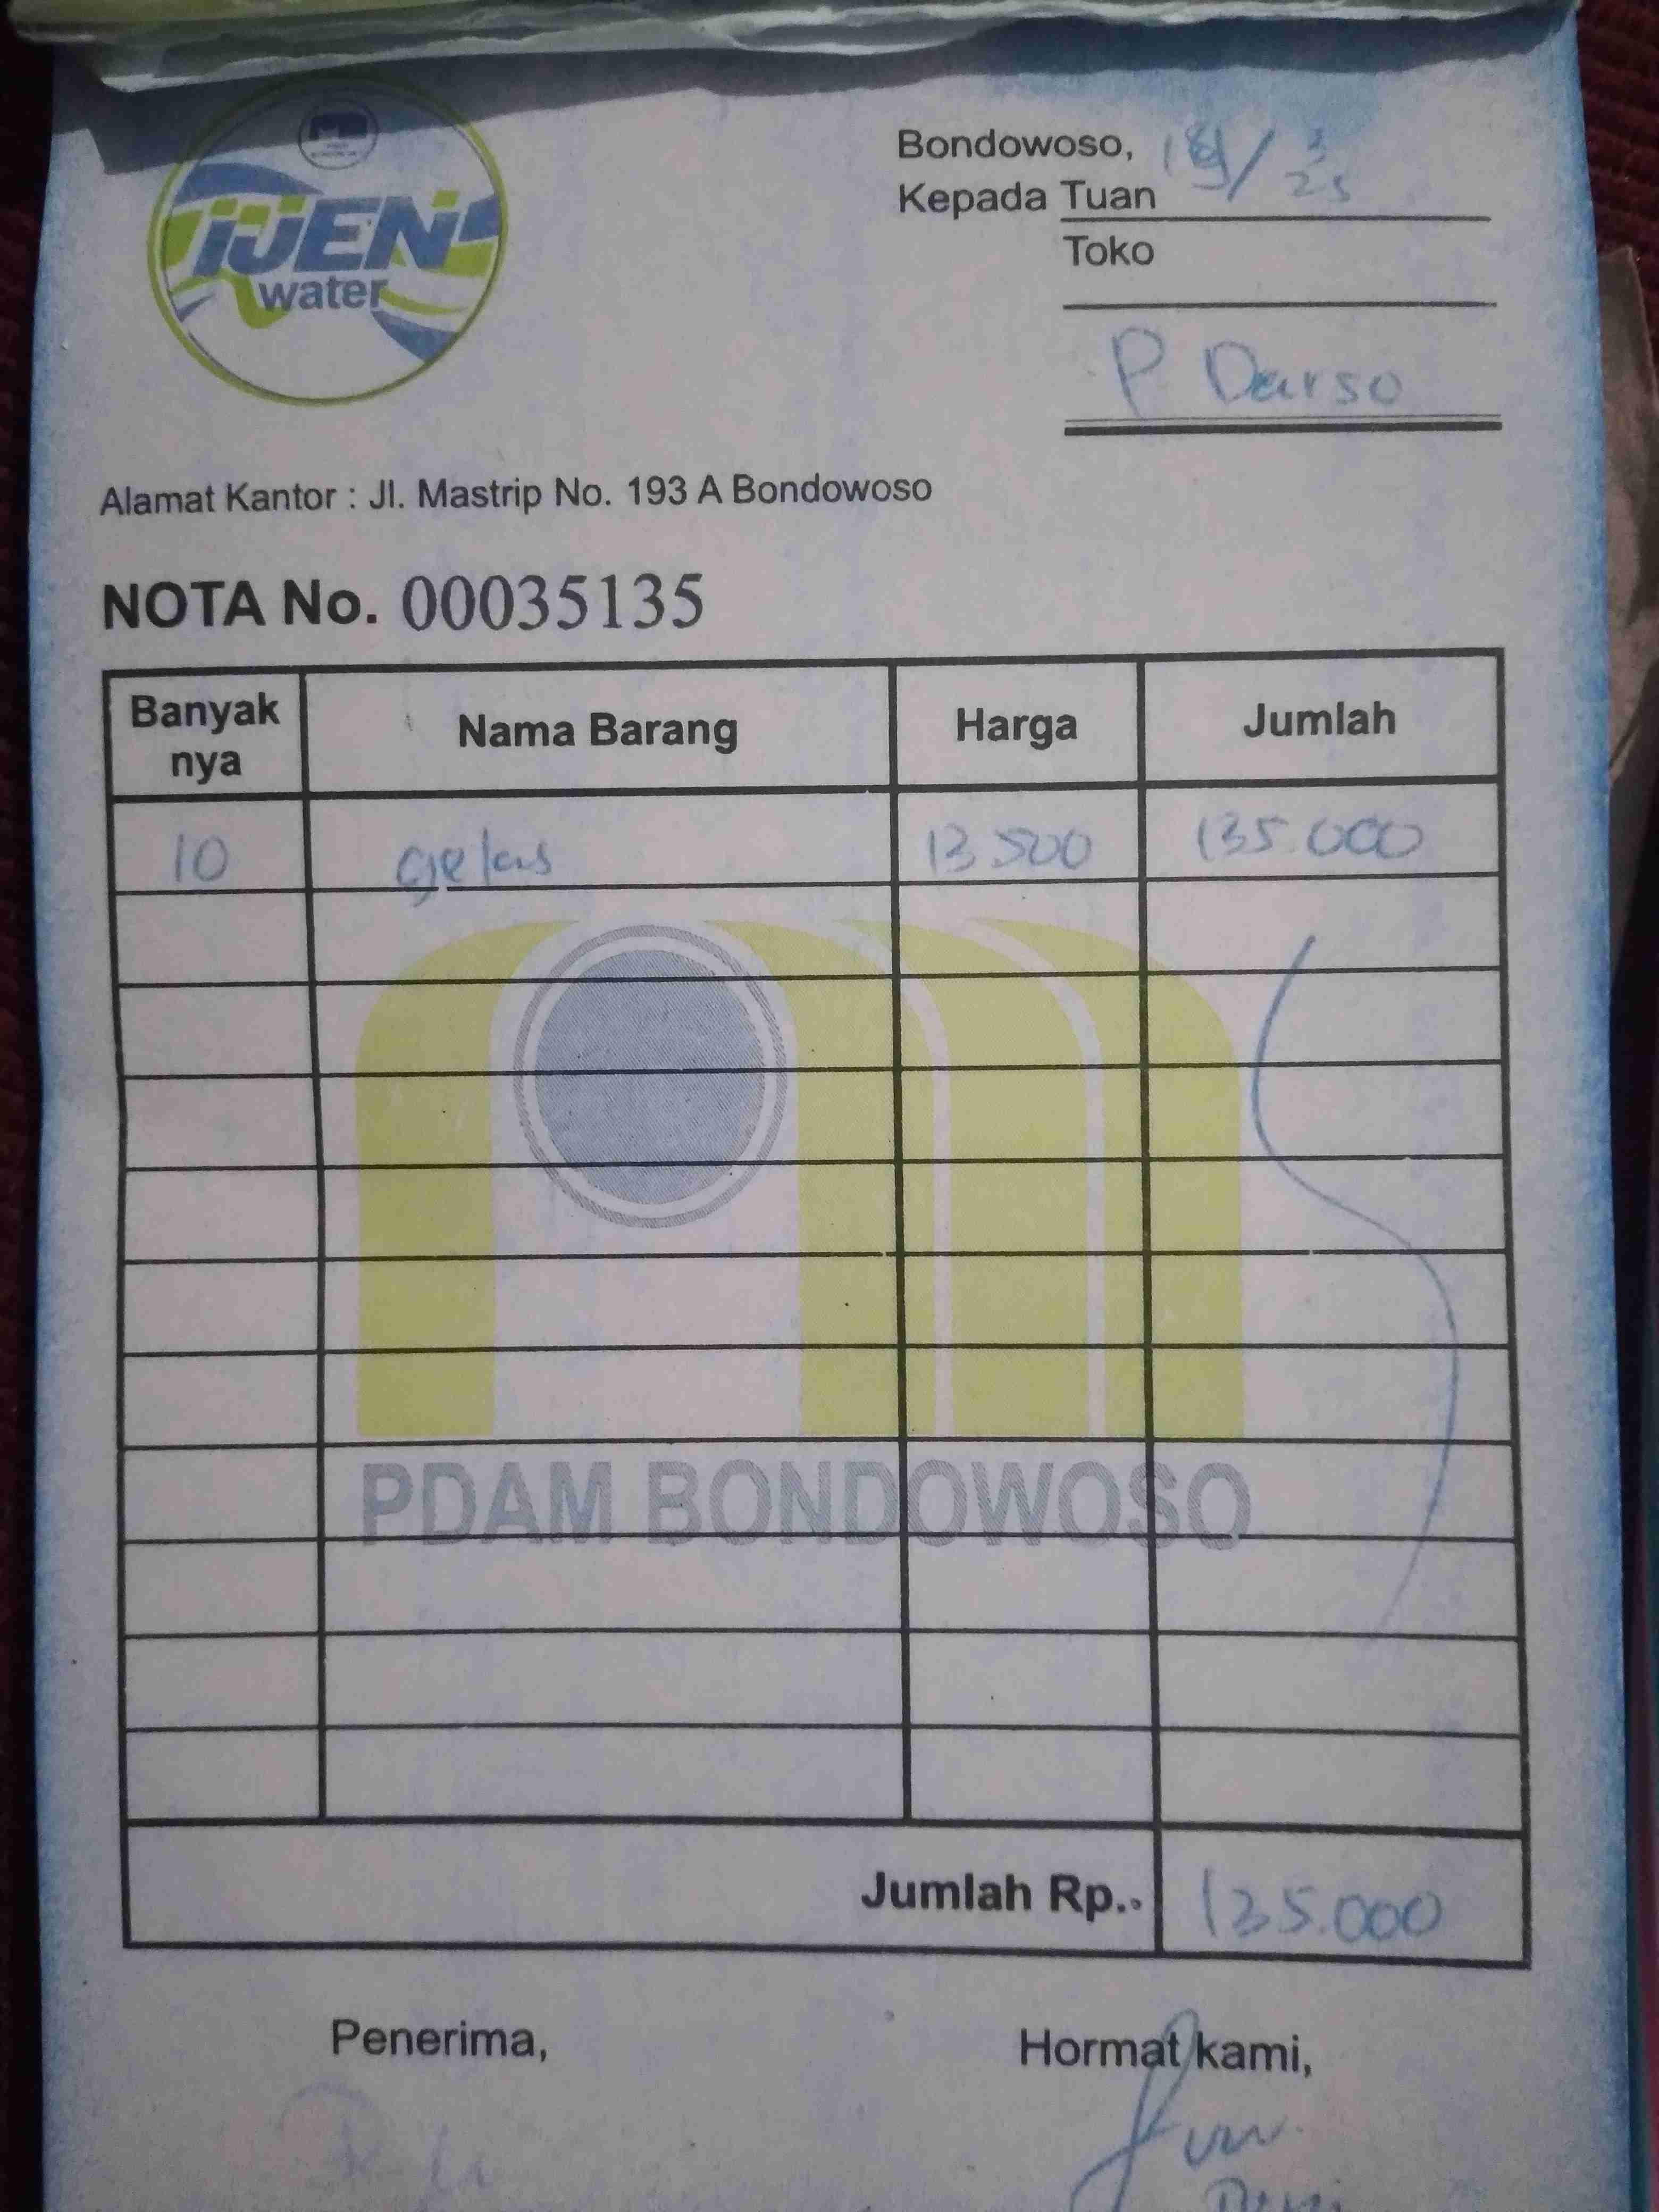 iJEN
water
Bondowoso, / 3
25
Kepada Tuan
Toko
P Darso
Alamat Kantor : Jl. Mastrip No. 193 A Bondowoso
NOTA No. 00035135
Banyak nya Nama Barang Harga Jumlah
10 gelas 13.500 135.000
PDAM BONDOWOSO
Jumlah Rp.. 135.000
Penerima, Hormat kami,